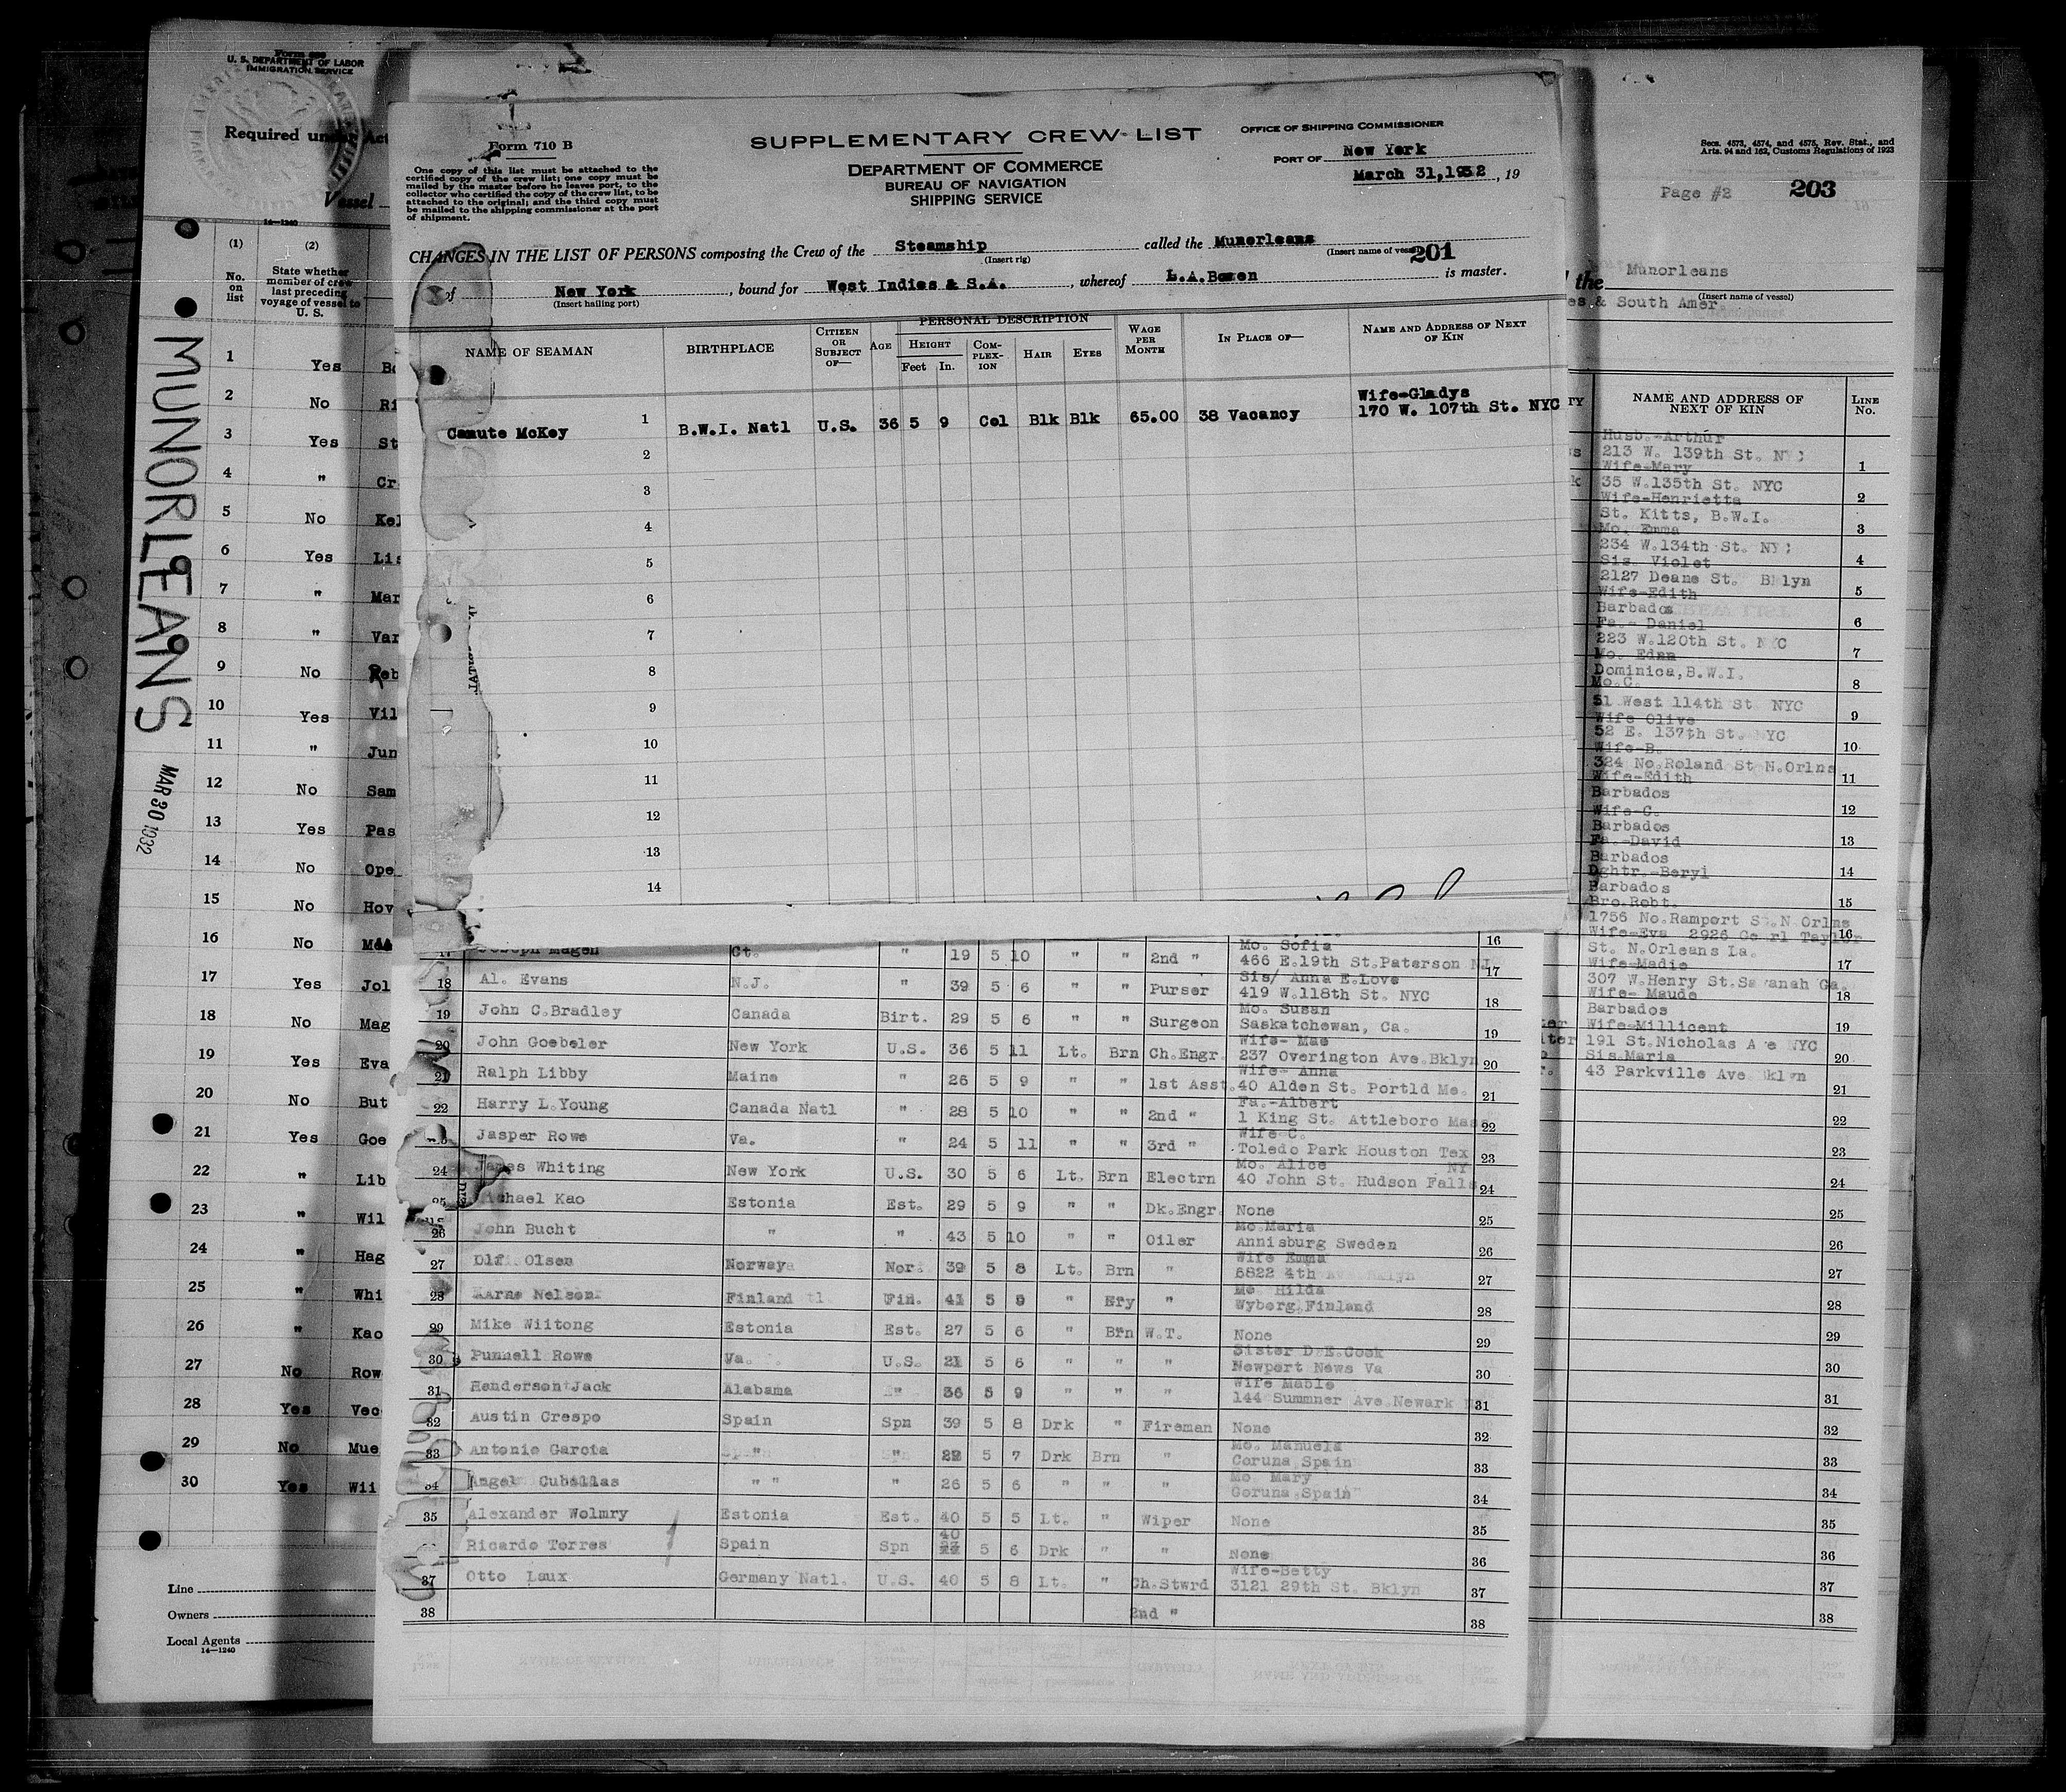 Form 689
U. S. DEPARTMENT OF LABOR
IMMIGRATION SERVICE
Required under Act
Vessel
14—1240
(1) (2)
No. on list
State whether member of crew last preceding voyage of vessel to U. S.
1 Yes Bo
2 No Ri
3 Yes St
4 " Cr
5 No Kel
6 Yes Lis
7 " Mar
8 " Var
9 No Reb
10 Yes Vil
11 " Jun
12 No Sam
13 Yes Pas
14 No Ope
15 No Hov
16 No
17 Yes Jol
18 No Mag
19 Yes Eva
20 No But
21 Yes Goe
22 " Lib
23 " Wil
24 " Hag
25 " Whi
26 " Kao
27 No Row
28 Yes Vec
29 No Mue
30 Yes Wii
Line
Owners
Local Agents
14—1240
MUNORLEANS
MAR 30 1932
Form 710 B
One copy of this list must be attached to the
certified copy of the crew list; one copy must be
mailed by the master before he leaves port, to the
collector who certified the copy of the crew list, to be
attached to the original; and the third copy must
be mailed to the shipping commissioner at the port
of shipment.
SUPPLEMENTARY CREW LIST
DEPARTMENT OF COMMERCE
BUREAU OF NAVIGATION
SHIPPING SERVICE
OFFICE OF SHIPPING COMMISSIONER
PORT OF New York
March 31,1932, 19
CHANGES IN THE LIST OF PERSONS composing the Crew of the Steamship called the Munorleans
(Insert rig) (Insert name of vessel) 201
of New York, bound for West Indies & S.A., whereof L.A.Bowen is master.
(Insert hailing port)
NAME OF SEAMAN BIRTHPLACE CITIZEN OR SUBJECT OF— AGE PERSONAL DESCRIPTION HEIGHT Feet In. COMPLEXION HAIR EYES WAGE PER MONTH IN PLACE OF— NAME AND ADDRESS OF NEXT OF KIN
Wife-Gladys
Canute McKey 1 B.W.I. Natl U.S. 36 5 9 Col Blk Blk 65.00 38 Vacancy 170 W. 107th St. NYC
2
3
4
5
6
7
8
9
10
11
12
13
14
16
17 Joseph Magen Ct. " 19 5 10 " " 2nd " Mo. Sofia 466 E.19th St.Paterson NJ 17
18 Al. Evans N.J. " 39 5 6 " " Purser Sis/ Anna E.Love 419 W.118th St. NYC 18
19 John C.Bradley Canada Birt. 29 5 6 " " Surgeon Mo. Susan Saskatchewan, Ca. 19
20 John Goebeler New York U.S. 36 5 11 Lt. Brn Ch.Engr. Wife- Mae 237 Overington Ave.Bklyn 20
21 Ralph Libby Maine " 26 5 9 " " 1st Asst. Wife- Anna 40 Alden St. Portld Me. 21
22 Harry L.Young Canada Natl " 28 5 10 " " 2nd " Fa.-Albert 1 King St. Attleboro Mass 22
23 Jasper Rowe Va. " 24 5 11 " " 3rd " Wife-C. Toledo Park Houston Tex 23
24 James Whiting New York U.S. 30 5 6 Lt. Brn Electrn Mo. Alice NY 40 John St. Hudson Falls 24
25 Michael Kao Estonia Est. 29 5 9 " " Dk.Engr. None 25
26 John Bucht " " 43 5 10 " " Oiler Mo.Maria Annisburg Sweden 26
27 Olf Olsen Norway Nor. 39 5 8 Lt. Brn " Wife Emma 5822 4th Ave.Bklyn 27
28 Karne Nelson Finland Fin. 41 5 9 " " Mo Hilda Wyborg Finland 28
29 Mike Wiitong Estonia Est. 27 5 6 " Brn W.T. None 29
30 Punnell Rowe Va. U.S. 21 5 6 " " " Sister D.E.Cook Newport News Va 30
31 Henderson Jack Alabama " 36 5 9 " " " Wife Mable 144 Summner Ave.Newark 31
32 Austin Crespo Spain Spn 39 5 8 Drk " Fireman None 32
33 Antonio Garcia " " 5 7 Drk Brn " Mo. Manuela Coruna Spain 33
34 Angel Cubellas " " " 26 5 6 " " " Mo Mary Coruna,Spain 34
35 Alexander Wolmry Estonia Est. 40 5 5 Lt. " Wiper None 35
36 Ricardo Torres Spain Spn 40 5 6 Drk " " None 36
37 Otto Laux Germany Natl. U.S. 40 5 8 Lt. " Ch.Stwrd Wife-Betty 3121 29th St. Bklyn 37
38 2nd " 38
Secs. 4573, 4574, and 4575, Rev. Stat., and
Arts. 94 and 162, Customs Regulations of 1923
Page #2 203
the Munorleans
(Insert name of vessel)
es & South Amer.
NAME AND ADDRESS OF NEXT OF KIN LINE No.
Husb.-Arthur
213 W. 139th St. NYC 1
Wife-Mary
35 W.135th St. NYC 2
Wife-Henrietta
St. Kitts, B.W.I. 3
Mo. Emma
234 W.134th St. NYC 4
Sis. Violet
2127 Deane St. Bklyn 5
Wife-Edith
Barbados 6
Fa.- Daniel
223 W.120th St. NYC 7
Mo. Edna
Dominica,B.W.I. 8
Mo.C.
51 West 114th St NYC 9
Wife Olive
52 E. 137th St. NYC 10
Wife-B.
324 No.Roland St N.Orlns 11
Wife-Edith
Barbados 12
Wife-C.
Barbados 13
Fa.-David
Barbados 14
Dghtr.-Beryl
Barbados 15
Bro.Robt.
1756 No.Ramport St.N Orlns 16
Wife-Eva 2926 Taylor
St. N.Orleans La. 17
Wife-Madie
307 W.Henry St.Savanah Ga. 18
Wife- Maude
Barbados 19
Wife-Millicent
191 St.Nicholas Ave NYC 20
Sis.Maria
43 Parkville Ave Bklyn 21
22
23
24
25
26
27
28
29
30
31
32
33
34
35
36
37
38